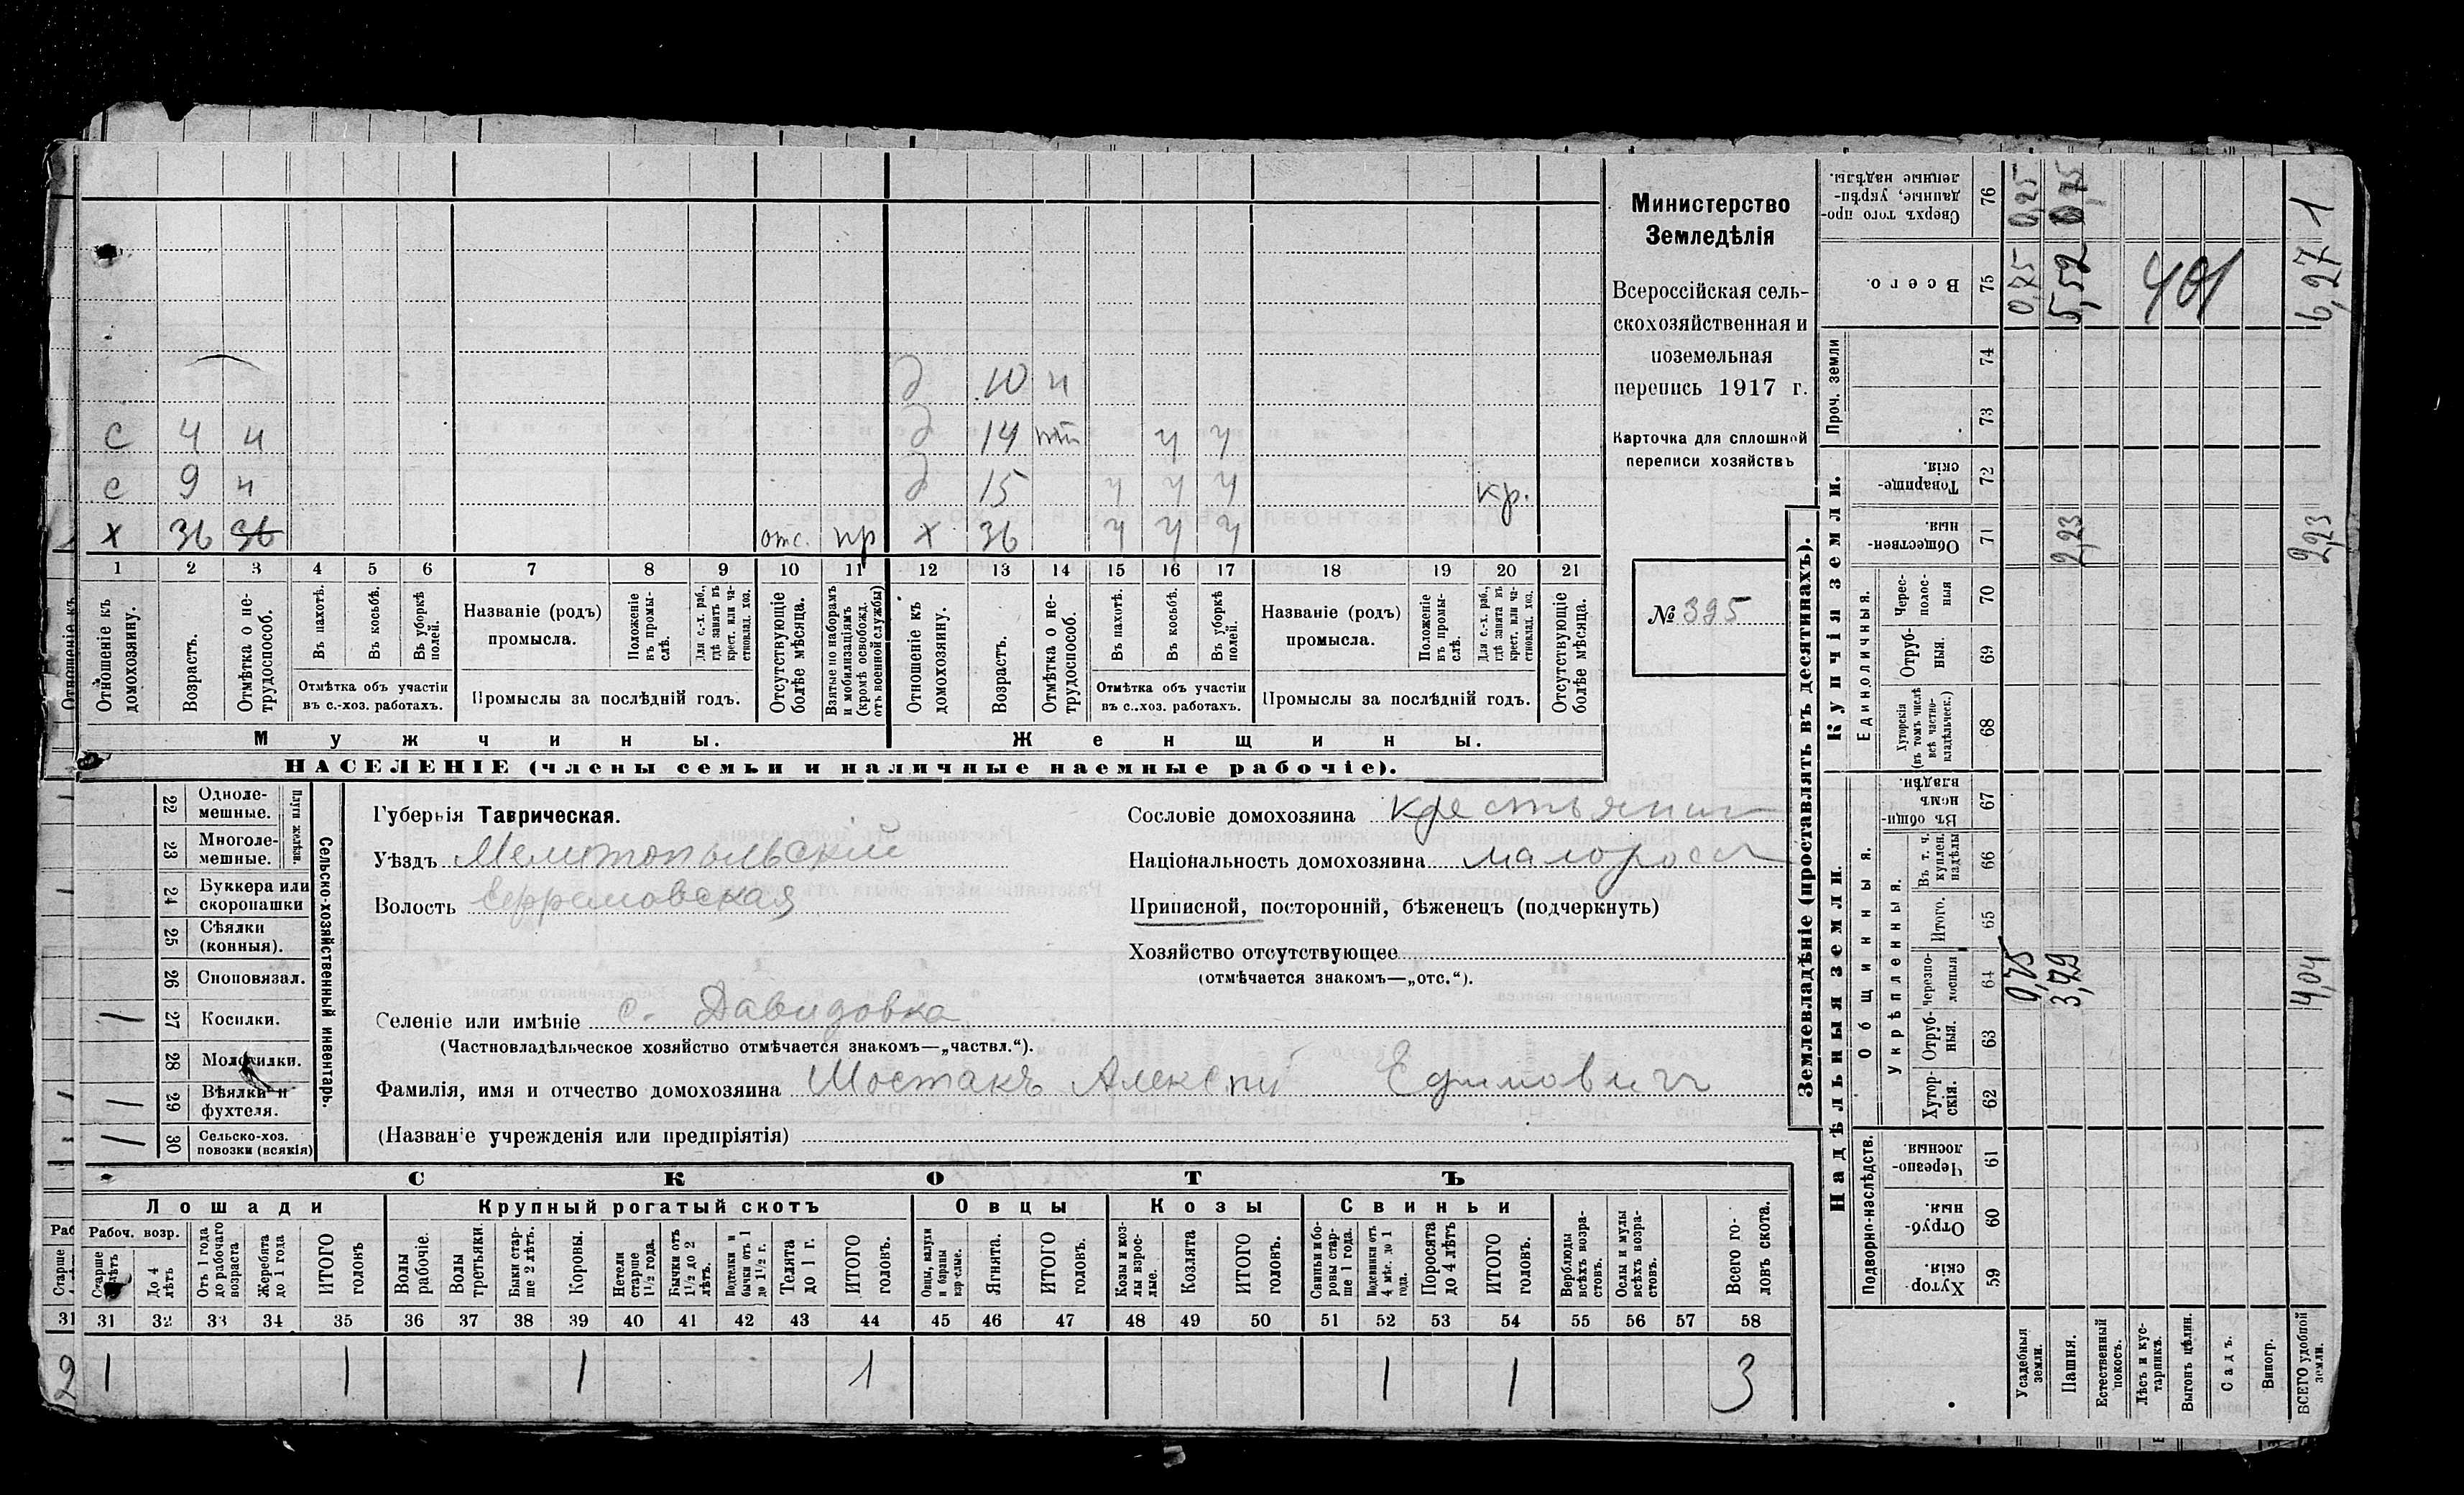 Министерство
Земледѣлія
Всероссійская сель-
скохозяйственная и
поземельная
перепись 1917 г.
Карточка для сплошной
переписи хозяйствъ
№ 395
д 10 н
с 4 н д 14 пт ч ч
с 9 н д 15 ч ч ч кр.
х 36 36 отс. пр х 36 ч ч ч
1 2 3 4 5 6 7 8 9 10 11 12 13 14 15 16 17 18 19 20 21
Отношеніе къ домохозяину.
Возрастъ.
Отмѣтка о не-трудоспособ.
Въ пахотѣ.
Въ косьбѣ.
Въ уборкѣ полей.
Отмѣтка объ участіи
въ с.-хоз. работахъ.
Названіе (родъ)
промысла.
Положеніе въ промы-слѣ.
Для с.-х. раб., гдѣ занятъ въ крест. или ча-стновлад. хоз.
Промыслы за послѣдній годъ.
Отсутствующіе болѣе мѣсяца.
Взятые по наборамъ и мобилизаціямъ (кромѣ освобожд. отъ военной службы)
Отношеніе къ домохозяину.
Возрастъ.
Отмѣтка о не-трудоспособ.
Въ пахотѣ.
Въ косьбѣ.
Въ уборкѣ полей.
Отмѣтка объ участіи
въ с.-хоз. работахъ.
Названіе (родъ)
промысла.
Положеніе въ промы-слѣ.
Для с.-х. раб., гдѣ занята въ крест. или ча-стновлад. хоз.
Промыслы за послѣдній годъ.
Отсутствующіе болѣе мѣсяца.
Мужчины. Женщины.
НАСЕЛЕНІЕ (члены семьи и наличные наемные рабочіе).
Сельско-хозяйственный инвентарь.
Плуги желѣзн.
22 Одноле-мешные.
23 Многоле-мешные.
24 Буккера или скоропашки
25 Сѣялки (конныя).
26 Сноповязал.
1 27 Косилки.
28 Молотилки.
1 29 Вѣялки и фухтеля.
1 30 Сельско-хоз. повозки (всякія)
Губернія Таврическая.
Уѣздъ Мелитопольскій
Волость Ефремовская
Сословіе домохозяина крестьянин
Національность домохозяина малоросс
Приписной, посторонній, бѣженецъ (подчеркнуть)
Хозяйство отсутствующее
(отмѣчается знакомъ—„отс.“).
Селеніе или имѣніе с. Давидовка
(Частновладѣльческое хозяйство отмѣчается знакомъ—„частвл.“).
Фамилія, имя и отчество домохозяина Мостакъ Алексѣй Ефимович
(Названіе учрежденія или предпріятія)
СКОТЪ
Лошади Крупный рогатый скотъ Овцы Козы Свиньи
Рабоч. возр.
Старше лѣтъ
До 4 лѣтъ
Отъ 1 года до рабочаго возраста
Жеребята до 1 года
ИТОГО головъ
Волы рабочіе.
Волы третьяки.
Быки стар-ше 2 лѣтъ.
Коровы.
Нетели старше 1½ года.
Бычки отъ 1½ до 2 лѣтъ.
Подтелки и бычки от 1 до 1½ г.
Телята до 1 г.
ИТОГО головъ.
Овцы, валухи и бараны взрослые.
Ягнята.
ИТОГО головъ.
Козы и коз-лы взрос-лые.
Козлята
ИТОГО головъ.
Свиньи и бо-ровы стар-ше 1 года.
Подсвинки отъ 4 мѣс. до 1 года.
Поросята до 4 лѣтъ
ИТОГО головъ.
Верблюды всѣхъ возра-стовъ.
Ослы и мулы всѣхъ возра-стовъ.
Всего го-ловъ скота.
31 31 32 33 34 35 36 37 38 39 40 41 42 43 44 45 46 47 48 49 50 51 52 53 54 55 56 57 58
2 1 1 1 1 1 1 3
Землевладѣніе (проставлять въ десятинахъ).
Надѣльныя земли. Купчія земли. Проч. земли
Подворно-наслѣдств.
Общинныя.
Укрѣпленныя.
Единоличныя.
Хутор-скія. 59
Отруб-ныя. 60
Черезпо-лосныя 61
Хутор-скія. 62
Отруб-ныя. 63
Черезпо-лосныя 64 0,25 3,79 4,04
Итого. 65
Въ т. ч. куплен. надѣлы 66
Въ общи-номъ владѣн. 67
Хуторскія (въ томъ числѣ всѣ частно-владѣльческ.) 68
Отруб-ныя. 69
Черес-полос-ныя 70
Обществен-ныя. 71 2,23 2,23
Товарище-скія. 72
73
74
Всего. 75 0,75 5,52 401 6,27
Сверхъ того про-данные, укрѣп-ленные надѣлы. 76 0,25 0,75 1
Усадебныя земли.
Пашня.
Естественный покосъ.
Лѣсъ и кус-тарникъ.
Выгонъ цѣлин.
Садъ.
Виногр.
ВСЕГО удобной земли.